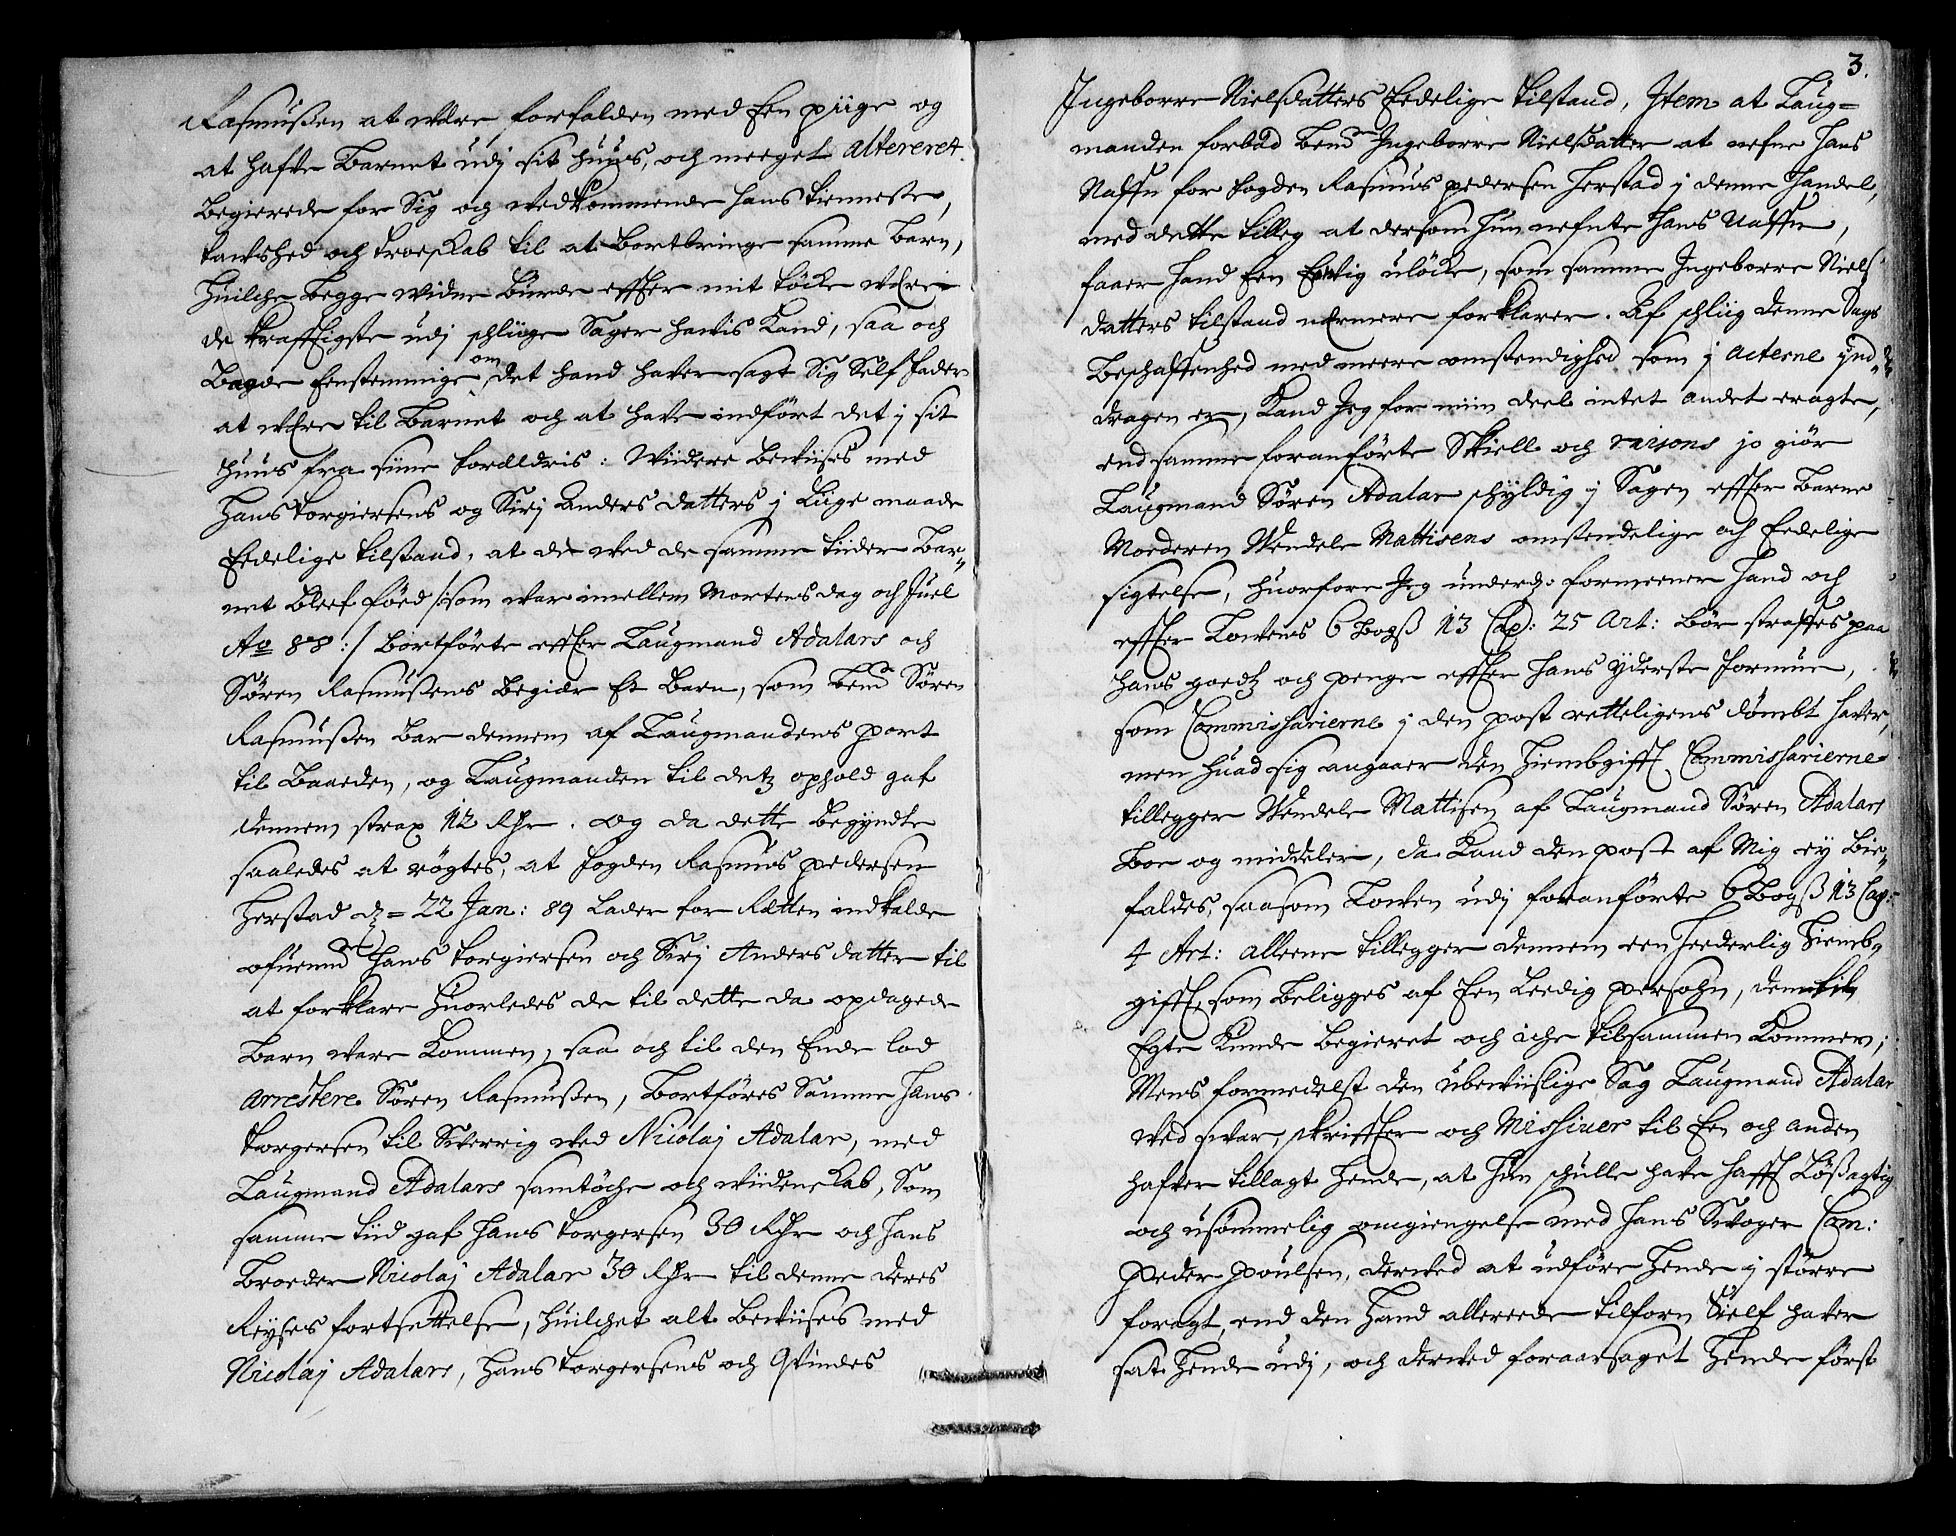 Rasmußen at være forfalden med Een piige og
at hafve Barnet udj sit huus, och meeget altereret.
Begierede for Sig og vedkommende hans tienneste,
taushed och troeskab til at bortbringe samme Barn,
Huilche begge vidne burde effter mit töcke være
de krafftigste udj schliige Sager havis kand, saa och
Begge Eenstemmige om det hand haver sagt Sig Self fader
at være til Barnet och at have indfört det j sit
huus fra siine forældris: Widere beviises med
Hans torgiersens og Sirj Anders datters j liige maade
Eedelige tilstand, at de ved de samme tider Bar„
net bleef föed /: som var imellem Mortens dag och Juel
Ao 88 :/ bortförte effter Laugmand Adalars och
Sören Rasmußens begier Et Barn, som bemd Sören
Rasmußen bar dennem af Laugmandens port
til Baaden, og Laugmanden til detz ophold gaf
dennem strax 12 Rdr. og da dette begyndte
saaledes at rögtes, at fogden Rasmus pedersen
Herstad d= 22 Jan: 89 lader for Retten indkalde
ofuenmd Hans torgiersen och Sirj Anders datter til
at forklare huorledes de til dette da opdagede
Barn vare kommen, saa och til den Ende lod
arrestere Sören Rasmußen, bortföres Samme Hans
torgersen til Sverrig ved Nicolaj Adalar, med
Laugmand Adalars samtöche och viidenskab, Som
samme tiid gaf Hans torgersen 30 Rdr och hans
Broeder Nicolaj Adalar 30 Rdr til denne deres
Reyses fortsettelse, huilchet alt beviises med
Nicolaj Adalars, Hans torgersens och Qvindes
3.
Ingeborre Nielsdatters Eedelige tilstand, Item at Laug=
manden forbød bemd Ingeborre Nielsdatter at nefne hans
Nafn for fogden Rasmus pedersen Herstad j denne handel,
med dette tilleg at dersom hun nefnte hans nafn,
faaer hand Een Evig ulöcke, som samme Ingeborre Niels
datters tilstand nermere forklarer. Af schliig denne Sags
beschaffenhed med meere omstendighed som j acterne ind„
dragen er, kand Jeg for miin deel intet andet eragte,
end samme foranförte Skiell och raisons jo giör
Laugmand Sören Adalar schyldig j Sagen effter Barne
Moderen Wendele Mattisens omstendelige och Eedelige
sigtelse, huorfore Jeg underd: formeener hand och
effter Lovens 6 Bogß 13 Cap: 25 Art: bör straffes paa
hans goedtz och penge effter hans yderste formue,
som Commissarierne j den post retteligens dömbt haver,
men huad sig angaaer den Hiembgifft Commissarierne
tillegger Wendele Mattisen af Laugmand Sören Adalars
Boe og middeler, da kand den post af Mig ey bie„
faldes, saasom Loven udj foranförte 6 Bogß 13 Cap:
4 Art: alleene tillegger dennem een hæderlig Hiemb„
gifft, som beligges af Een leedig persohn, dem til
Egte kunde begieret och iche tilsammen kommer;
Mens formedelst den ubeviislige Sag Laugmand Adalar
ved svar, skriffter och Missiver til Een och anden
hafver tillagt hende, at hun schulle have hafft lößagtig
och usömmelig omgiengelse med hans Svoger Com:
Peder Poulsen, derved at udföre hende j större
foragt, end den hand allereede tilforn Sielf haver
sat hende udj, och derved foraarsaget hende först